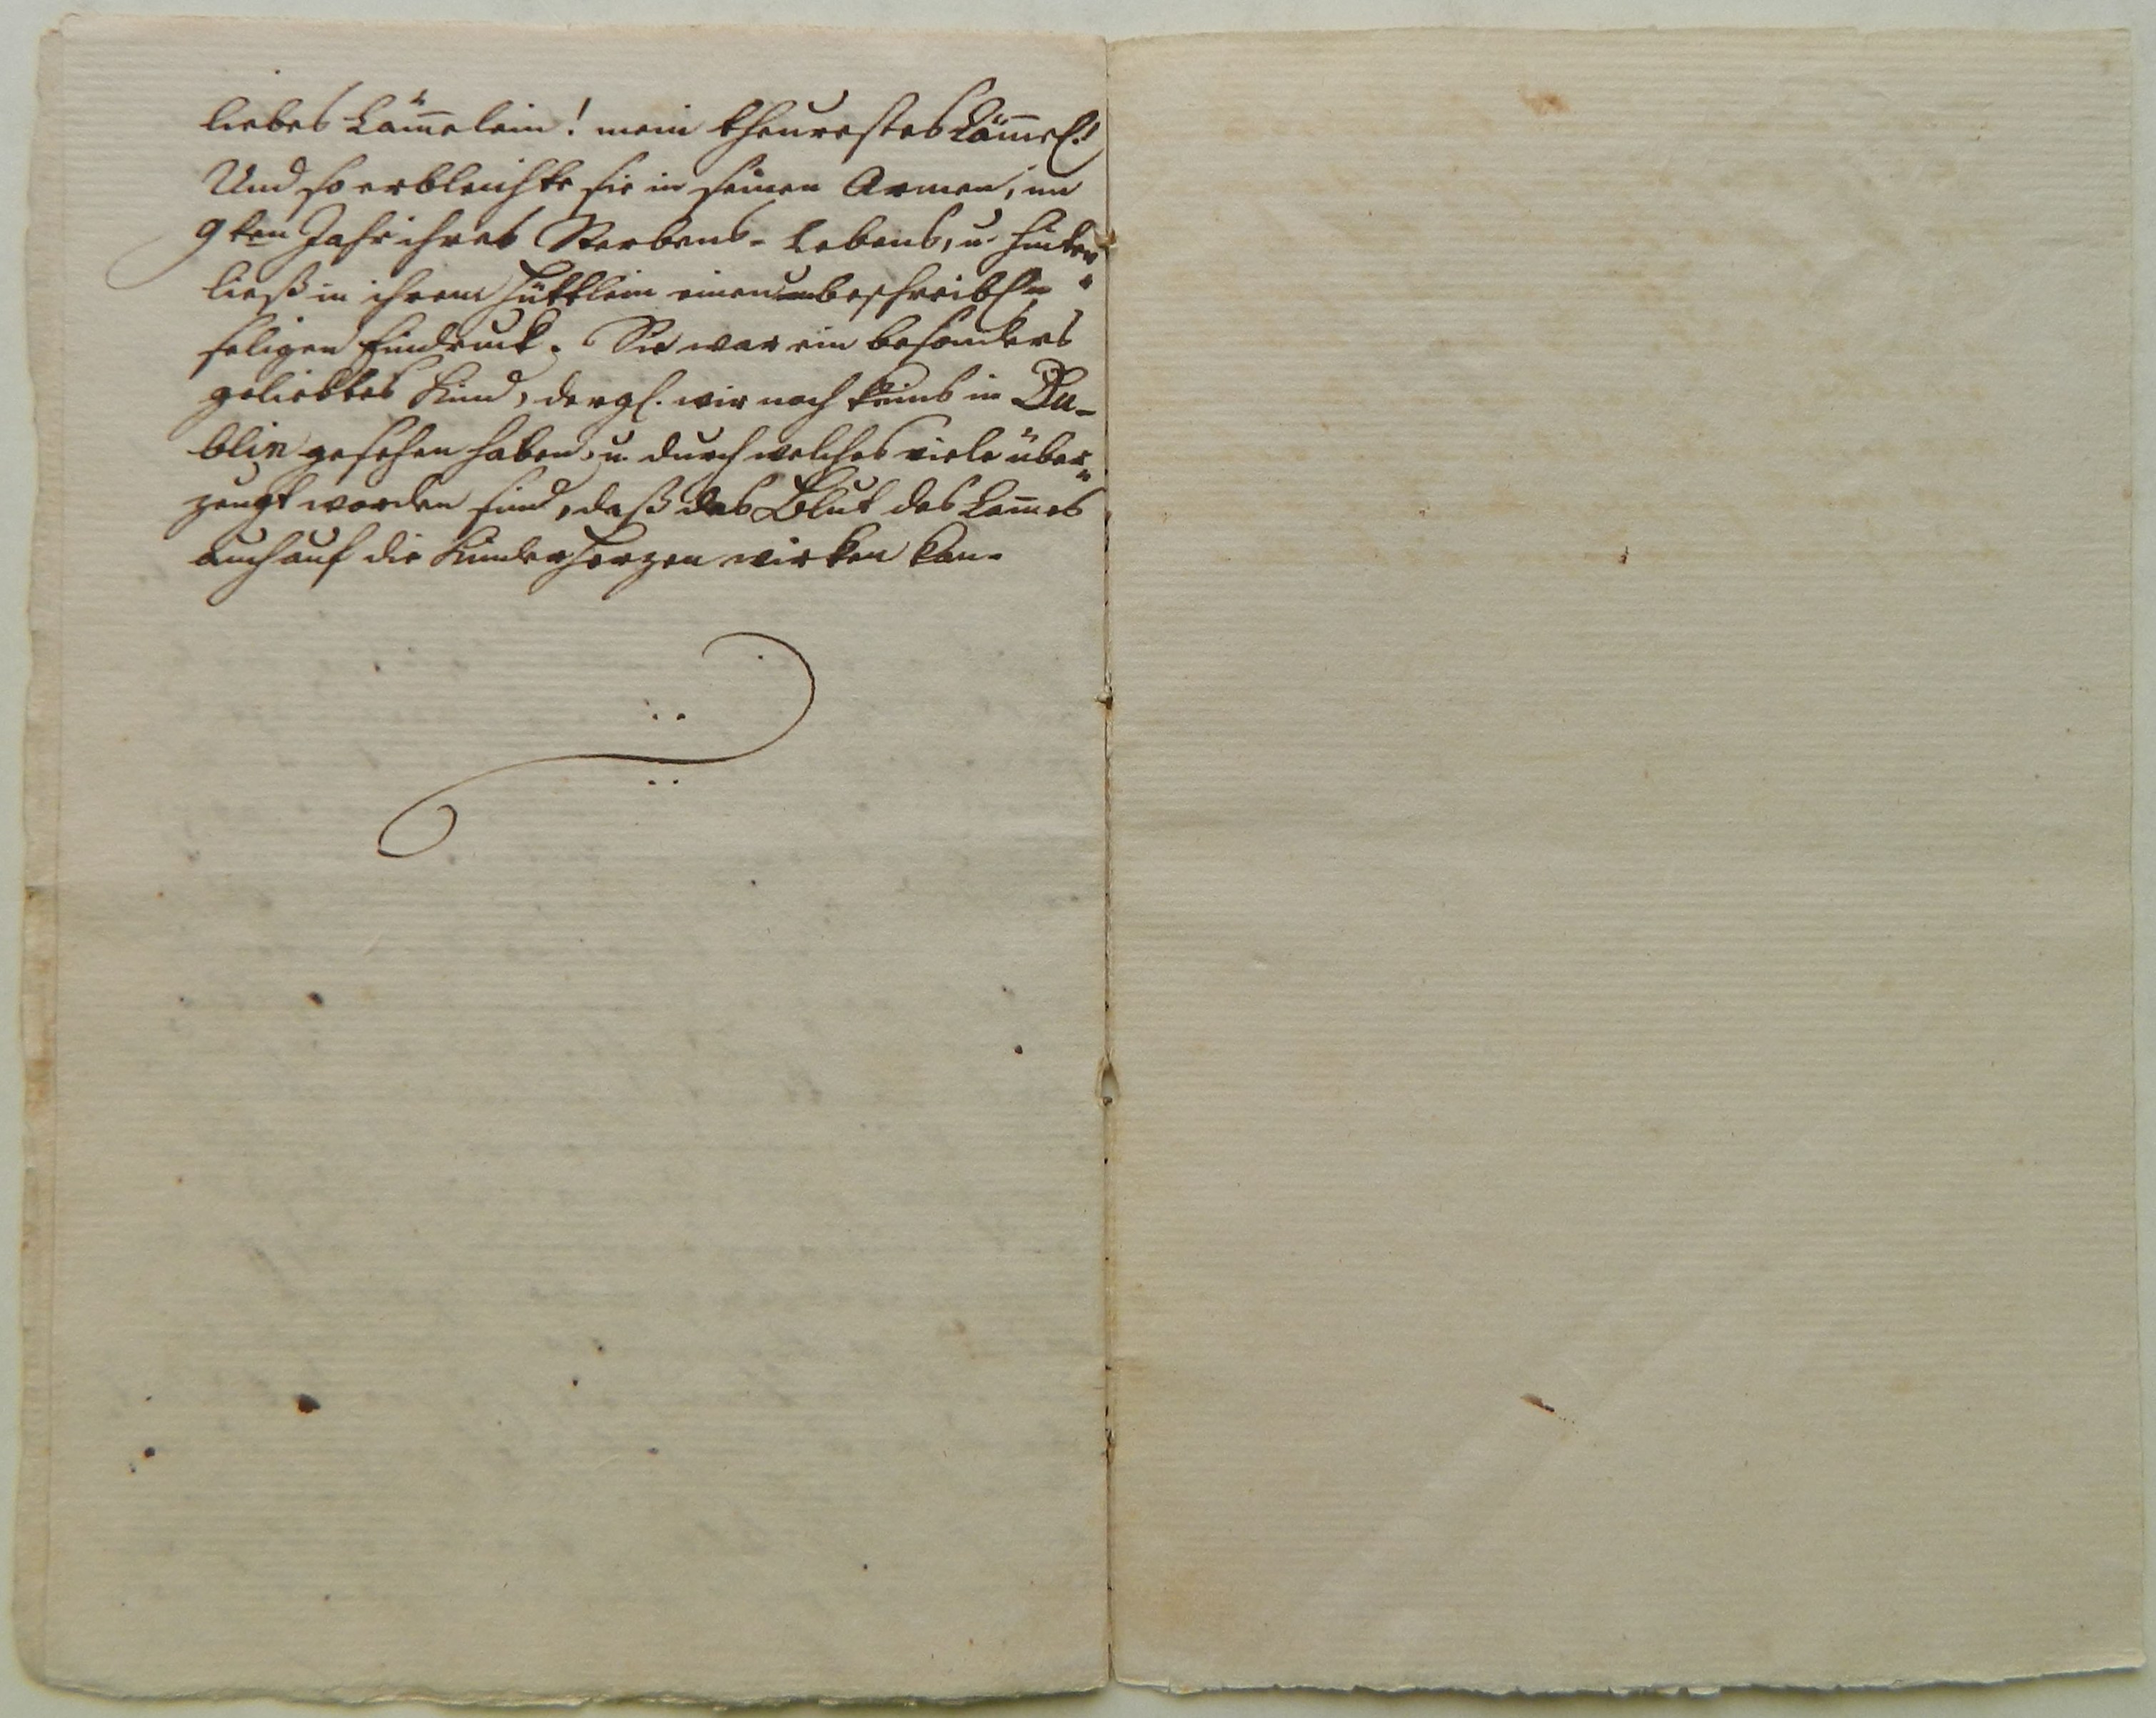 liebes Läm̄elein! mein theurestes Läm̄el.!
Und so erbleichte sie in seinen Armen, im
9ten Jahr ihres Sterbens-Lebens, u. hinter„
ließ in ihrem Hüttlein einen unbeschreibl.
seligen Eindruck. Sie war ein besonders
geliebtes Kind, dergl. wir noch keins in Du-
blin gesehen haben, u. durch welches viele über„
zeugt worden sind, daß das Blut des Lam̄es
auch auf die Kinder Herzen wirken kan.